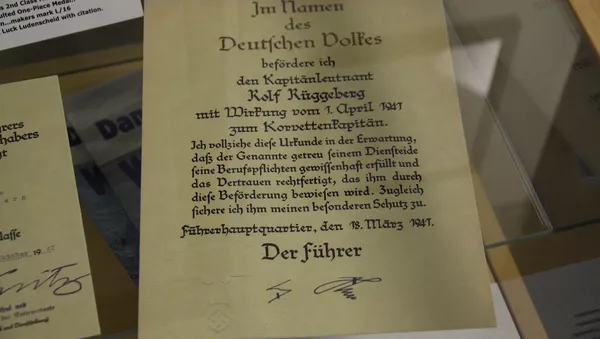 s 2nd Class
ulted One-Piece Meda...
n...makers mark L/16
Luck Ludenscheid with citation.
Im Namen
des
Deutschen Volkes
befördere ich
den Kapitänleutnant
Rolf Rüggeberg
mit Wirkung vom 1. April 1941
zum Korvettenkapitän.
Ich vollziehe diese Urkunde in der Erwartung,
daß der Genannte getreu seinem Diensteide
seine Berufspflichten gewissenhaft erfüllt und
das Vertrauen rechtfertigt, das ihm durch
diese Beförderung bewiesen wird. Zugleich
sichere ich ihm meinen besonderen Schutz zu.
Führerhauptquartier, den 18. März 1941.
Der Führer